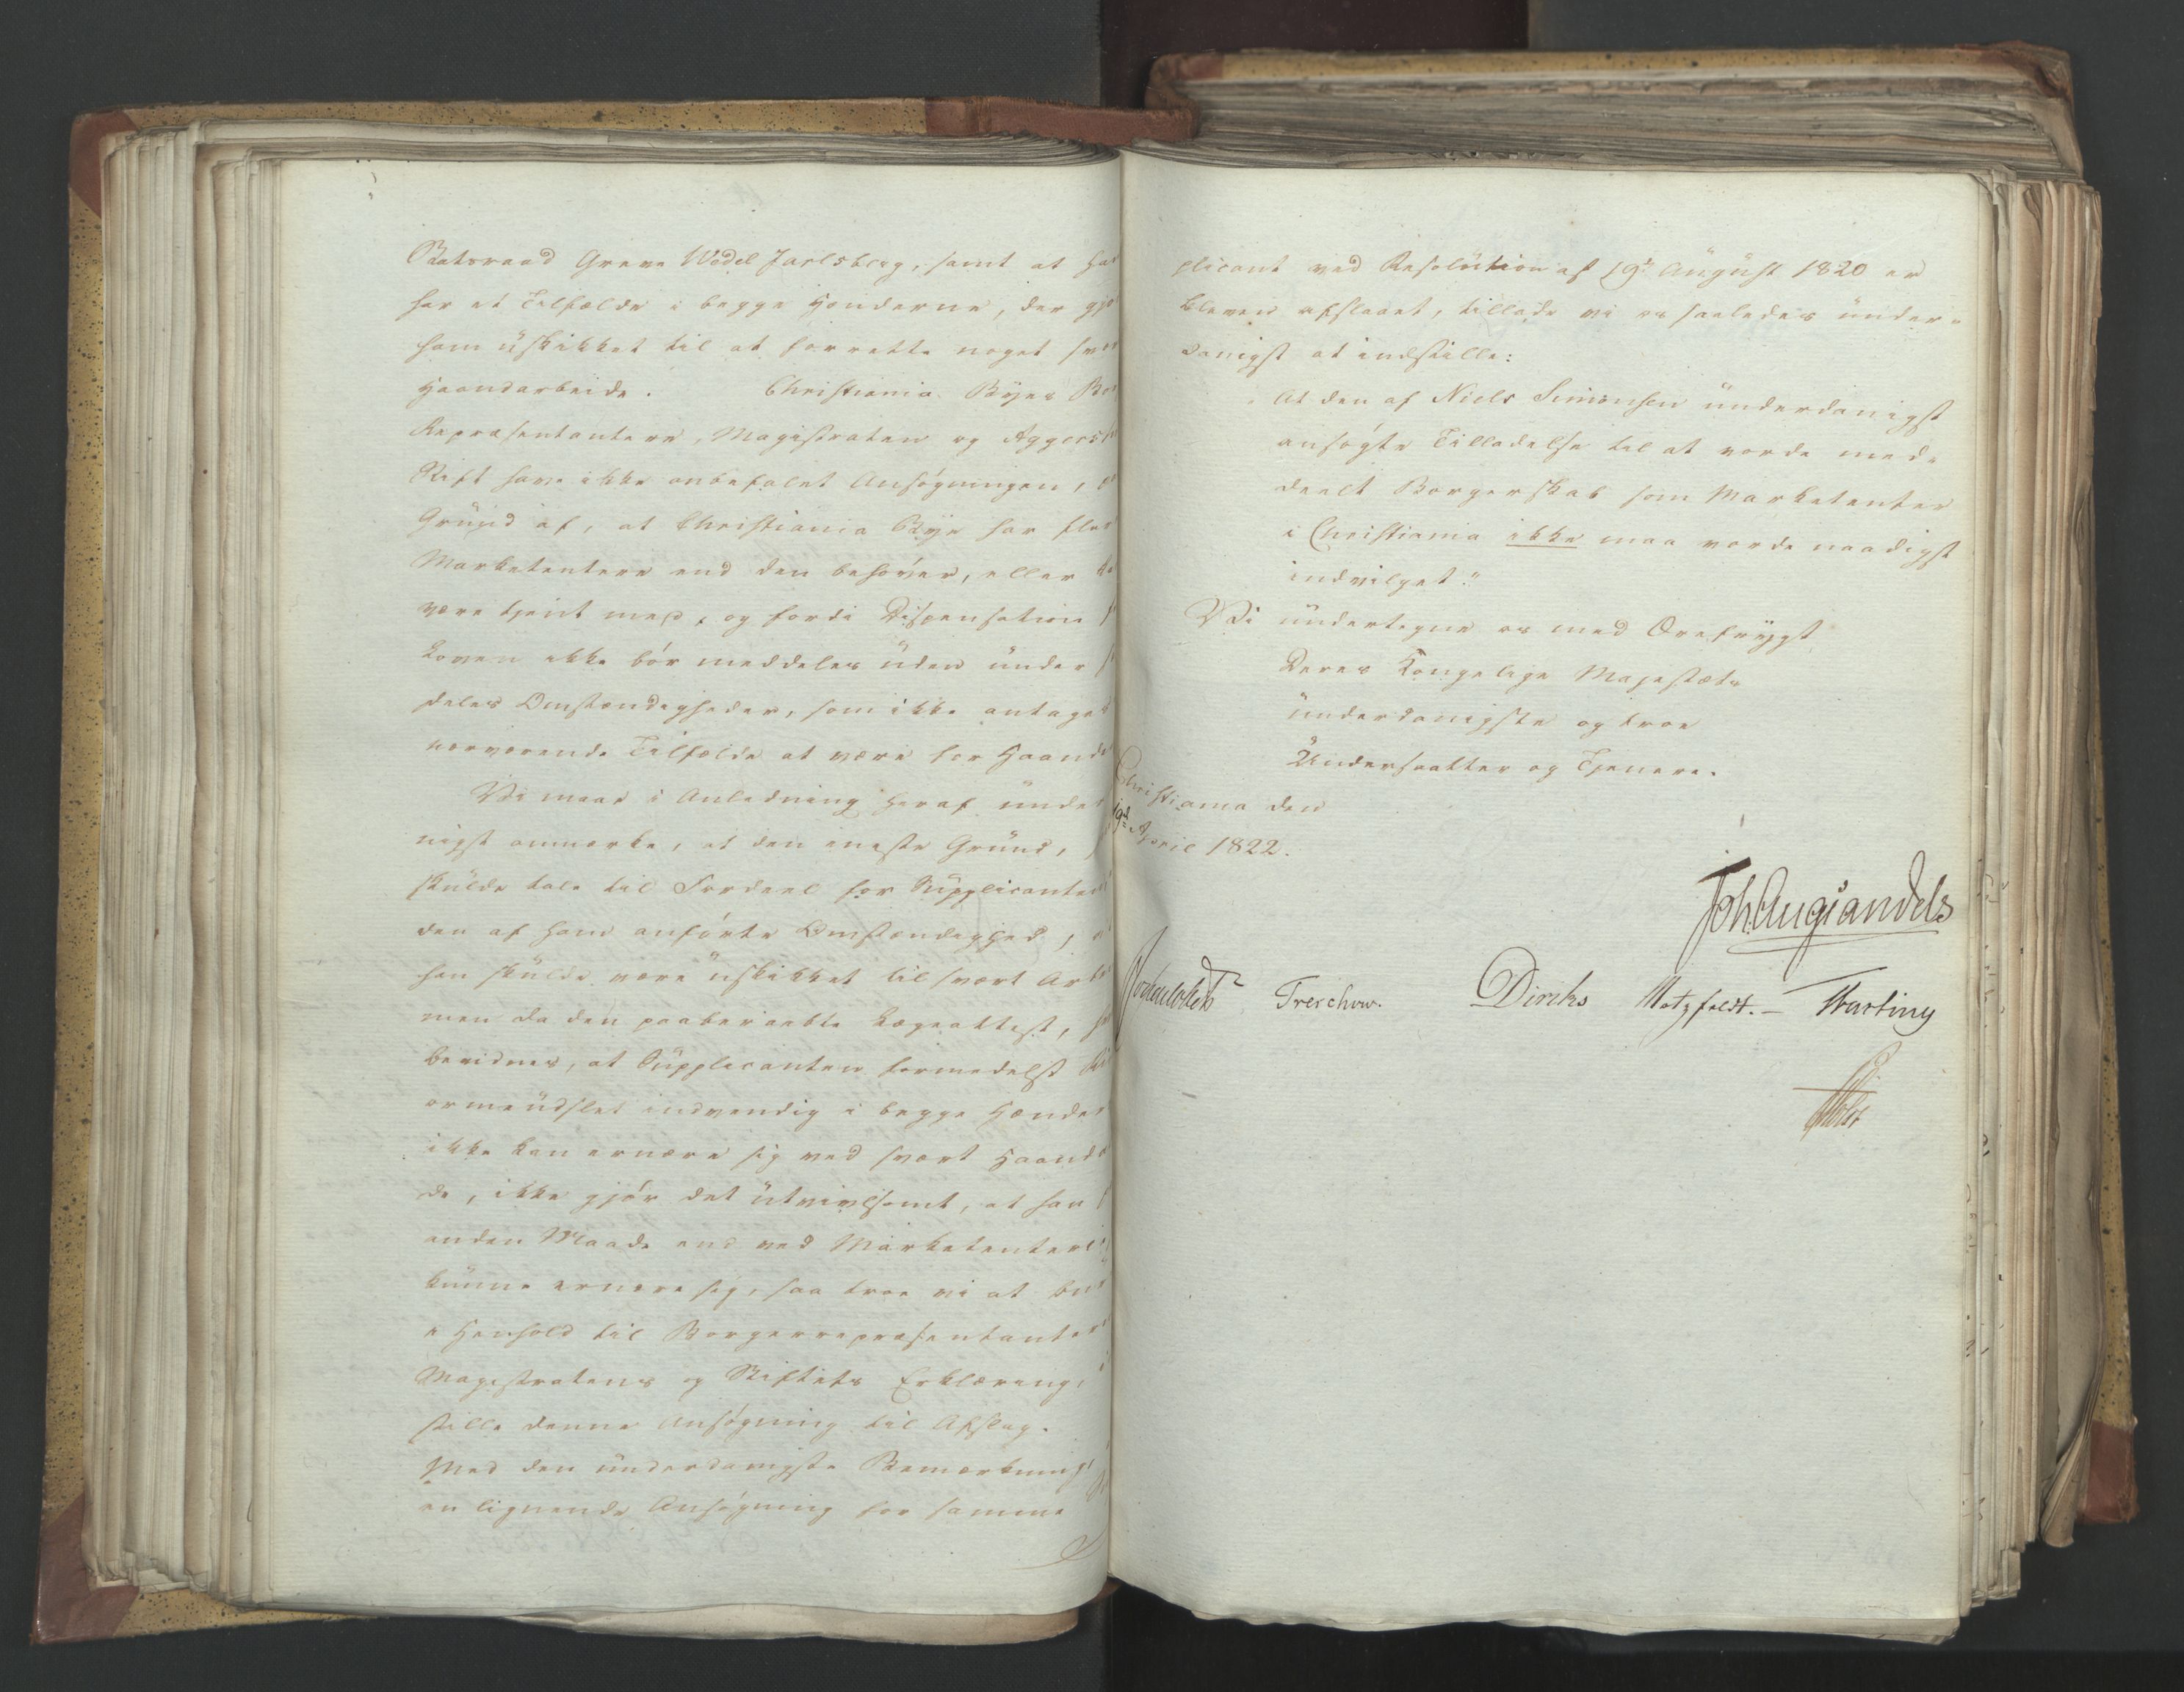 Statsraad Greve Wedel Jarlsberg, samt at han
har et Tilfælde i begge Hænderne, der gjø
ham uskikket til at forrette noget svær
Haandarbeide. Christiania Byes Bor
Repræsentantere, Magistraten og Aggersh
Stift have ikke anbefalet Ansøgningen, p
Grund af, at Christiania Bye har fler
Marketentere end den behøver, eller ka
være tjent med, og fordi Dispensation f
Loven ikke bør meddeles uden under s
deles Omstændigheder, som ikke antages
nærværende Tilfælde at være for Haande
Vi maae i Anledning heraf under
nigst anmærke, at den eneste Grund,
skulde tale til Fordeel for Supplicanten
den af ham anførte Omstændighed, a
han skulde være uskikket til svært Arb
men da den paaberaabte Lægeattest, h
bevidnes, at Supplicanten formedelst
ormeudslet indvendig i begge Hænder
ikke kan ernære sig ved svært Haand
de, ikke gjør det utvivlsomt, at han p
anden Maade end ved Marketenteri
kunne ernære sig, saa troe vi at bu
i Henhold til Borgerrepræsentanter
Magistratens og Stiftets Erklæring,
stille denne Ansøgning til Afslag.
Med den underdanigste Bemærkning
en lignende Ansøgning for samme
plicant ved Resolution af 19de August 1820 er
bleven afslaaet, tillade vi os saaledes under-
danigst at indstille:
At den af Niels Simonsen underdanigst
ansøgte Tilladelse til at vorde med-
deelt Borgerskab som Marketenter
i Christiania ikke maa vorde naadigst
indvilget."
Vi undertegne os med Ærefrygt
Deres Kongelige Majestæts
underdanigste og troe
Undersaatter og Tjenere.
Christiania den
19de April 1822.
Joh. Aug. Sandels
Treschow. Diriks Motzfeldt. Fasting
Holst